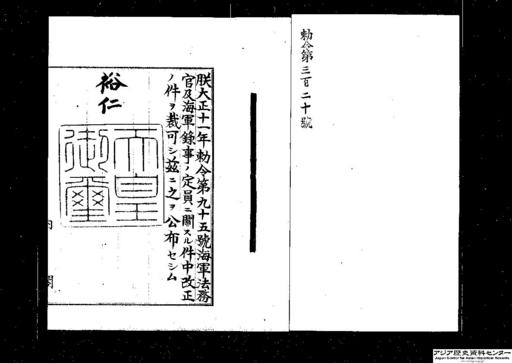 勅令第三百二十號
朕大正十一年勅令第九十五號海軍法務
官及海軍錄事ノ定員ニ關スル件中改正
ノ件ヲ裁可シ茲ニ之ヲ公布セシム
裕仁
天皇
御璽
内閣
アジア歴史資料センター
Japan Center for Asian Historical Records